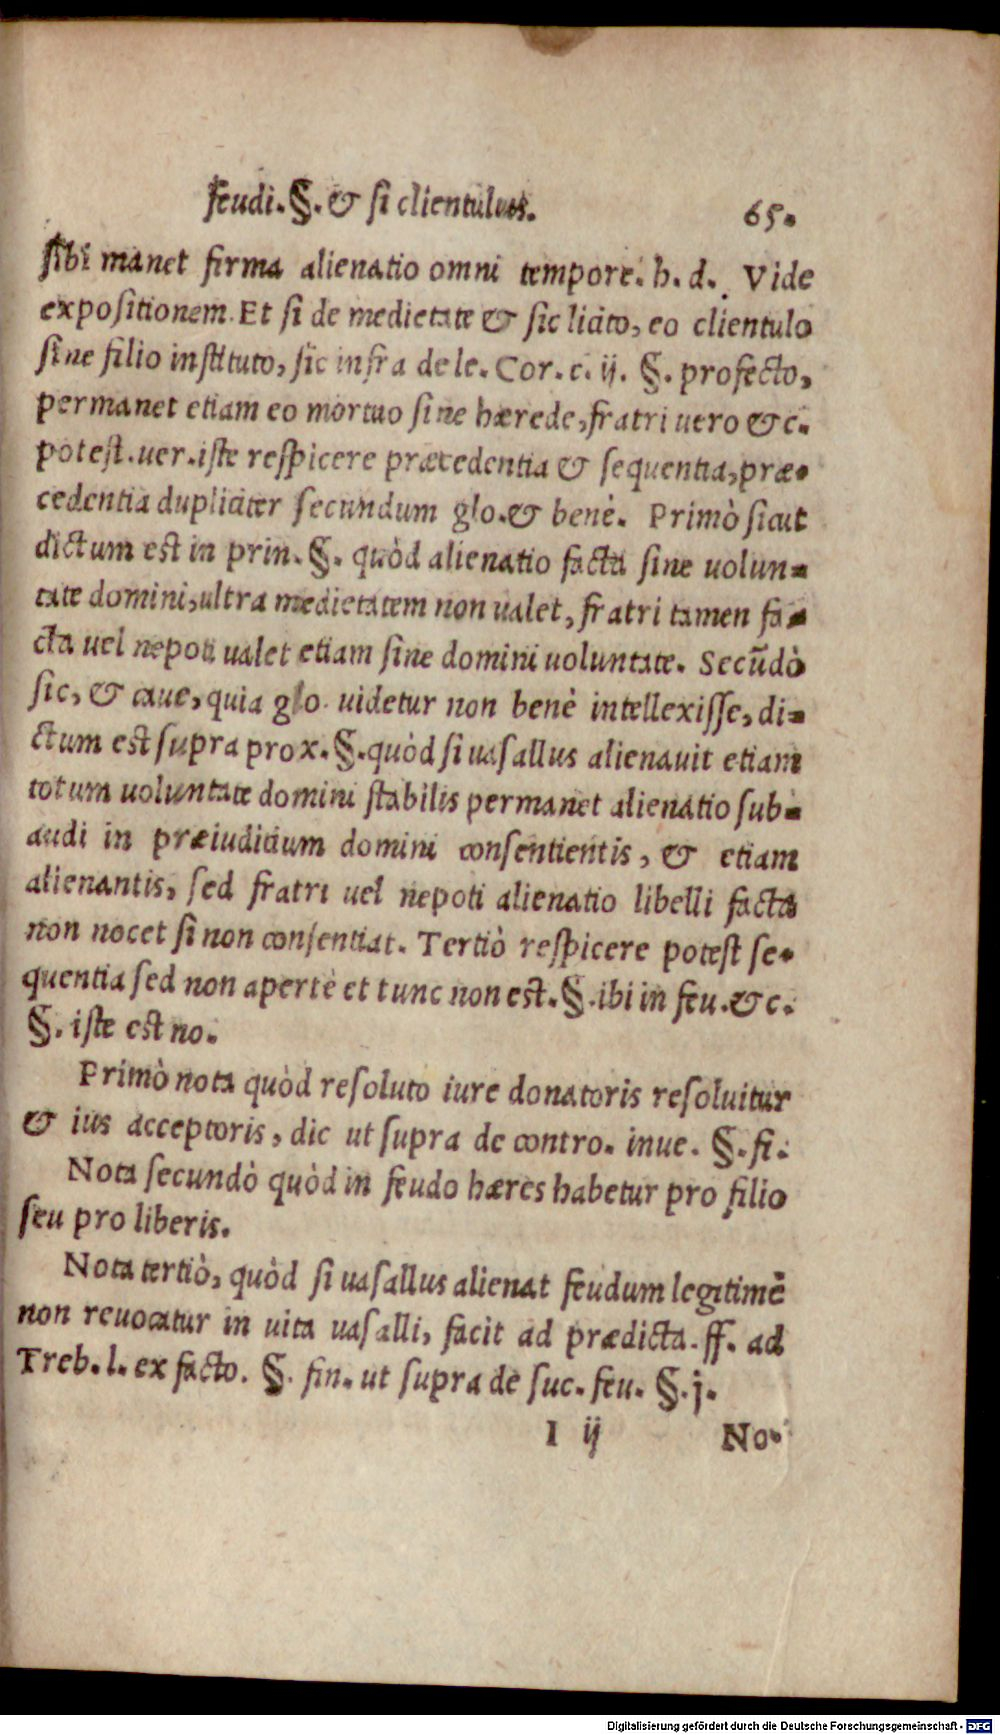 feudi. §. & si clientulus. 65.
sibi manet firma alienatio omni tempore. h. d. Vide
expositionem. Et si de medietate & sic licito, eo clientulo
sine filio instituto, sic infra de le. Cor. c. ij. §. profecto,
permanet etiam eo mortuo sine hærede, fratri uero &c.
potest. uer. iste respicere præcedentia & sequentia, præ-
cedentia dupliciter secundum glo. & benè. Primò sicut
dictum est in prin. §. quòd alienatio facta sine uolun-
tate domini, ultra medietatem non ualet, fratri tamen fa-
cta uel nepoti ualet etiam sine domini uoluntate. Secũdò
sic, & caue, quia glo. uidetur non benè intellexisse, di-
ctum est supra prox. §. quòd si uasallus alienauit etiam
totum uoluntate domini stabilis permanet alienatio sub-
audi in præiuditium domini consentientis, & etiam
alienantis, sed fratri uel nepoti alienatio libelli facta
non nocet si non consentiat. Tertiò respicere potest se-
quentia sed non apertè et tunc non est. §. ibi in feu. &c.
§. iste est no.
Primò nota quòd resoluto iure donatoris resoluitur
& ius acceptoris, dic ut supra de contro. inue. §. fi.
Nota secundò quòd in feudo hæres habetur pro filio
seu pro liberis.
Nota tertiò, quòd si uasallus alienat feudum legitimè
non reuocatur in uita uasalli, facit ad prædicta. ff. ad
Treb. l. ex facto. §. fin. ut supra de suc. feu. §. j.
I ij No-
Digitalisierung gefördert durch die Deutsche Forschungsgemeinschaft - DFG